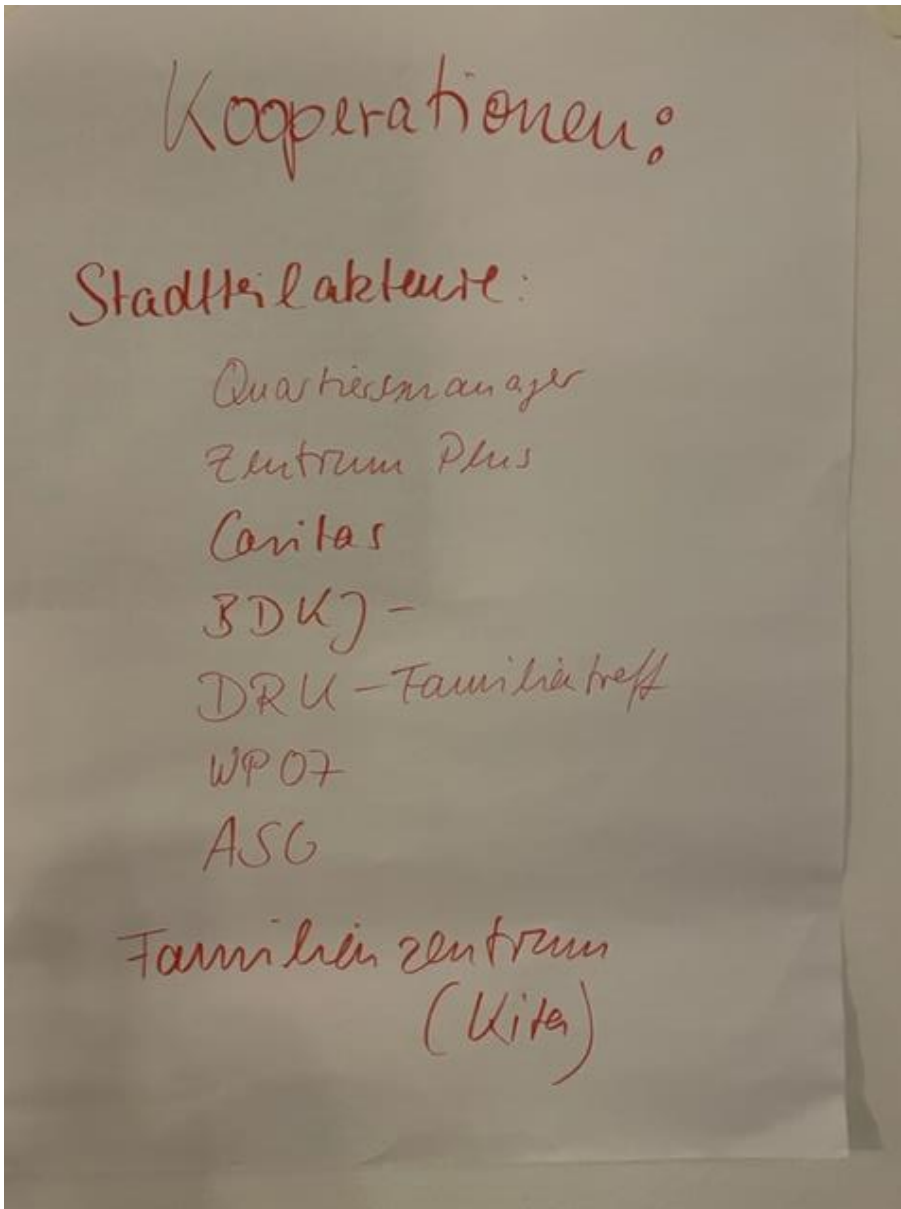 Kooperationen:
Stadtteilakteure:
Quartiersmanager
Zentrum Plus
Caritas
BDKJ -
DRK - Familientreff
WP07
ASG
Familienzentrum
(Kita)